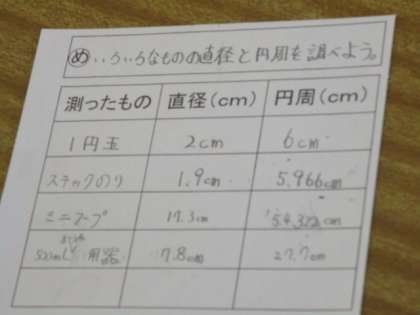 め いろいろなものの直径と円周を調べよう。
測ったもの 直径(cm) 円周(cm)
1円玉 2cm 6cm
スティックのり 1.9cm 5.966cm
17.3cm 54.322cm
500mL 用器 7.8cm 27.7cm